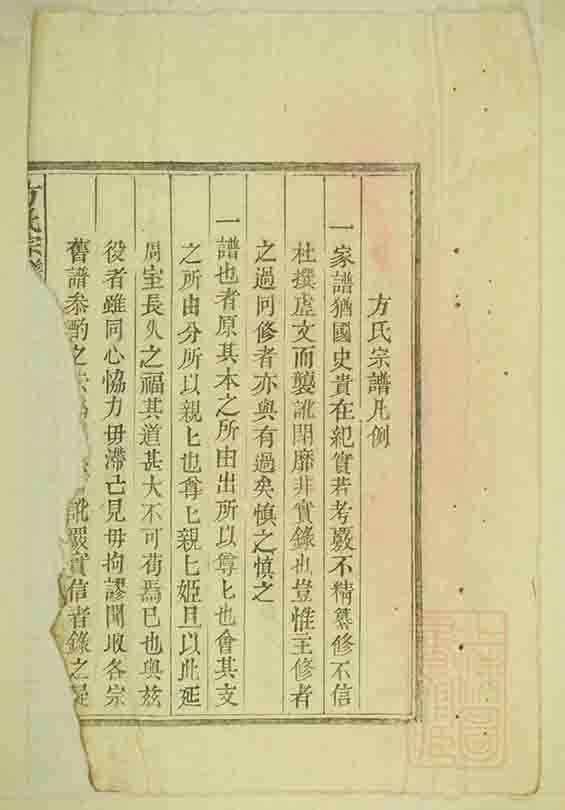 方氏宗譜凡例
一家譜猶國史貴在紀實若考覈不精纂修不信
杜撰虛文而襲訛閉靡非實錄也豈惟主修者
之過同修者亦與有過矣慎之慎之
一譜也者原其本之所由出所以尊匕也會其支
之所由分所以親匕也尊匕親匕姬旦以此延
周室長久之福其道甚大不可苟焉已也與茲
役者雖同心恊力毋滯己見毋拘謬聞取各宗
舊譜叅酌之 訛覈實信者錄之疑
方氏宗譜